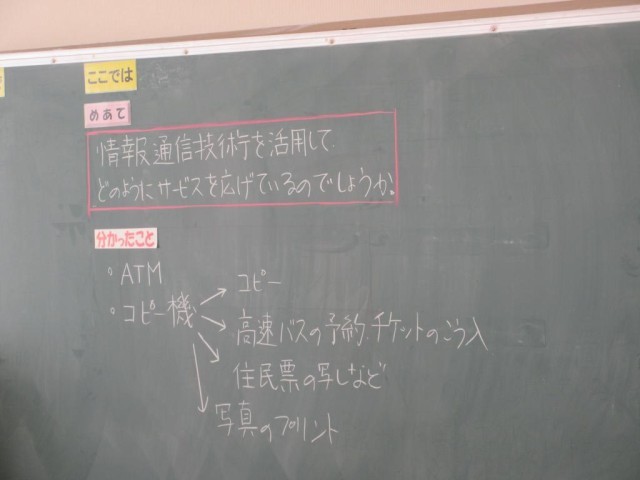 ここでは
めあて
情報通信技術を活用して、
どのようにサービスを広げているのでしょうか。
分かったこと
・ATM
・コピー機
コピー
高速バスの予約、チケットのこう入
住民票の写しなど
写真のプリント